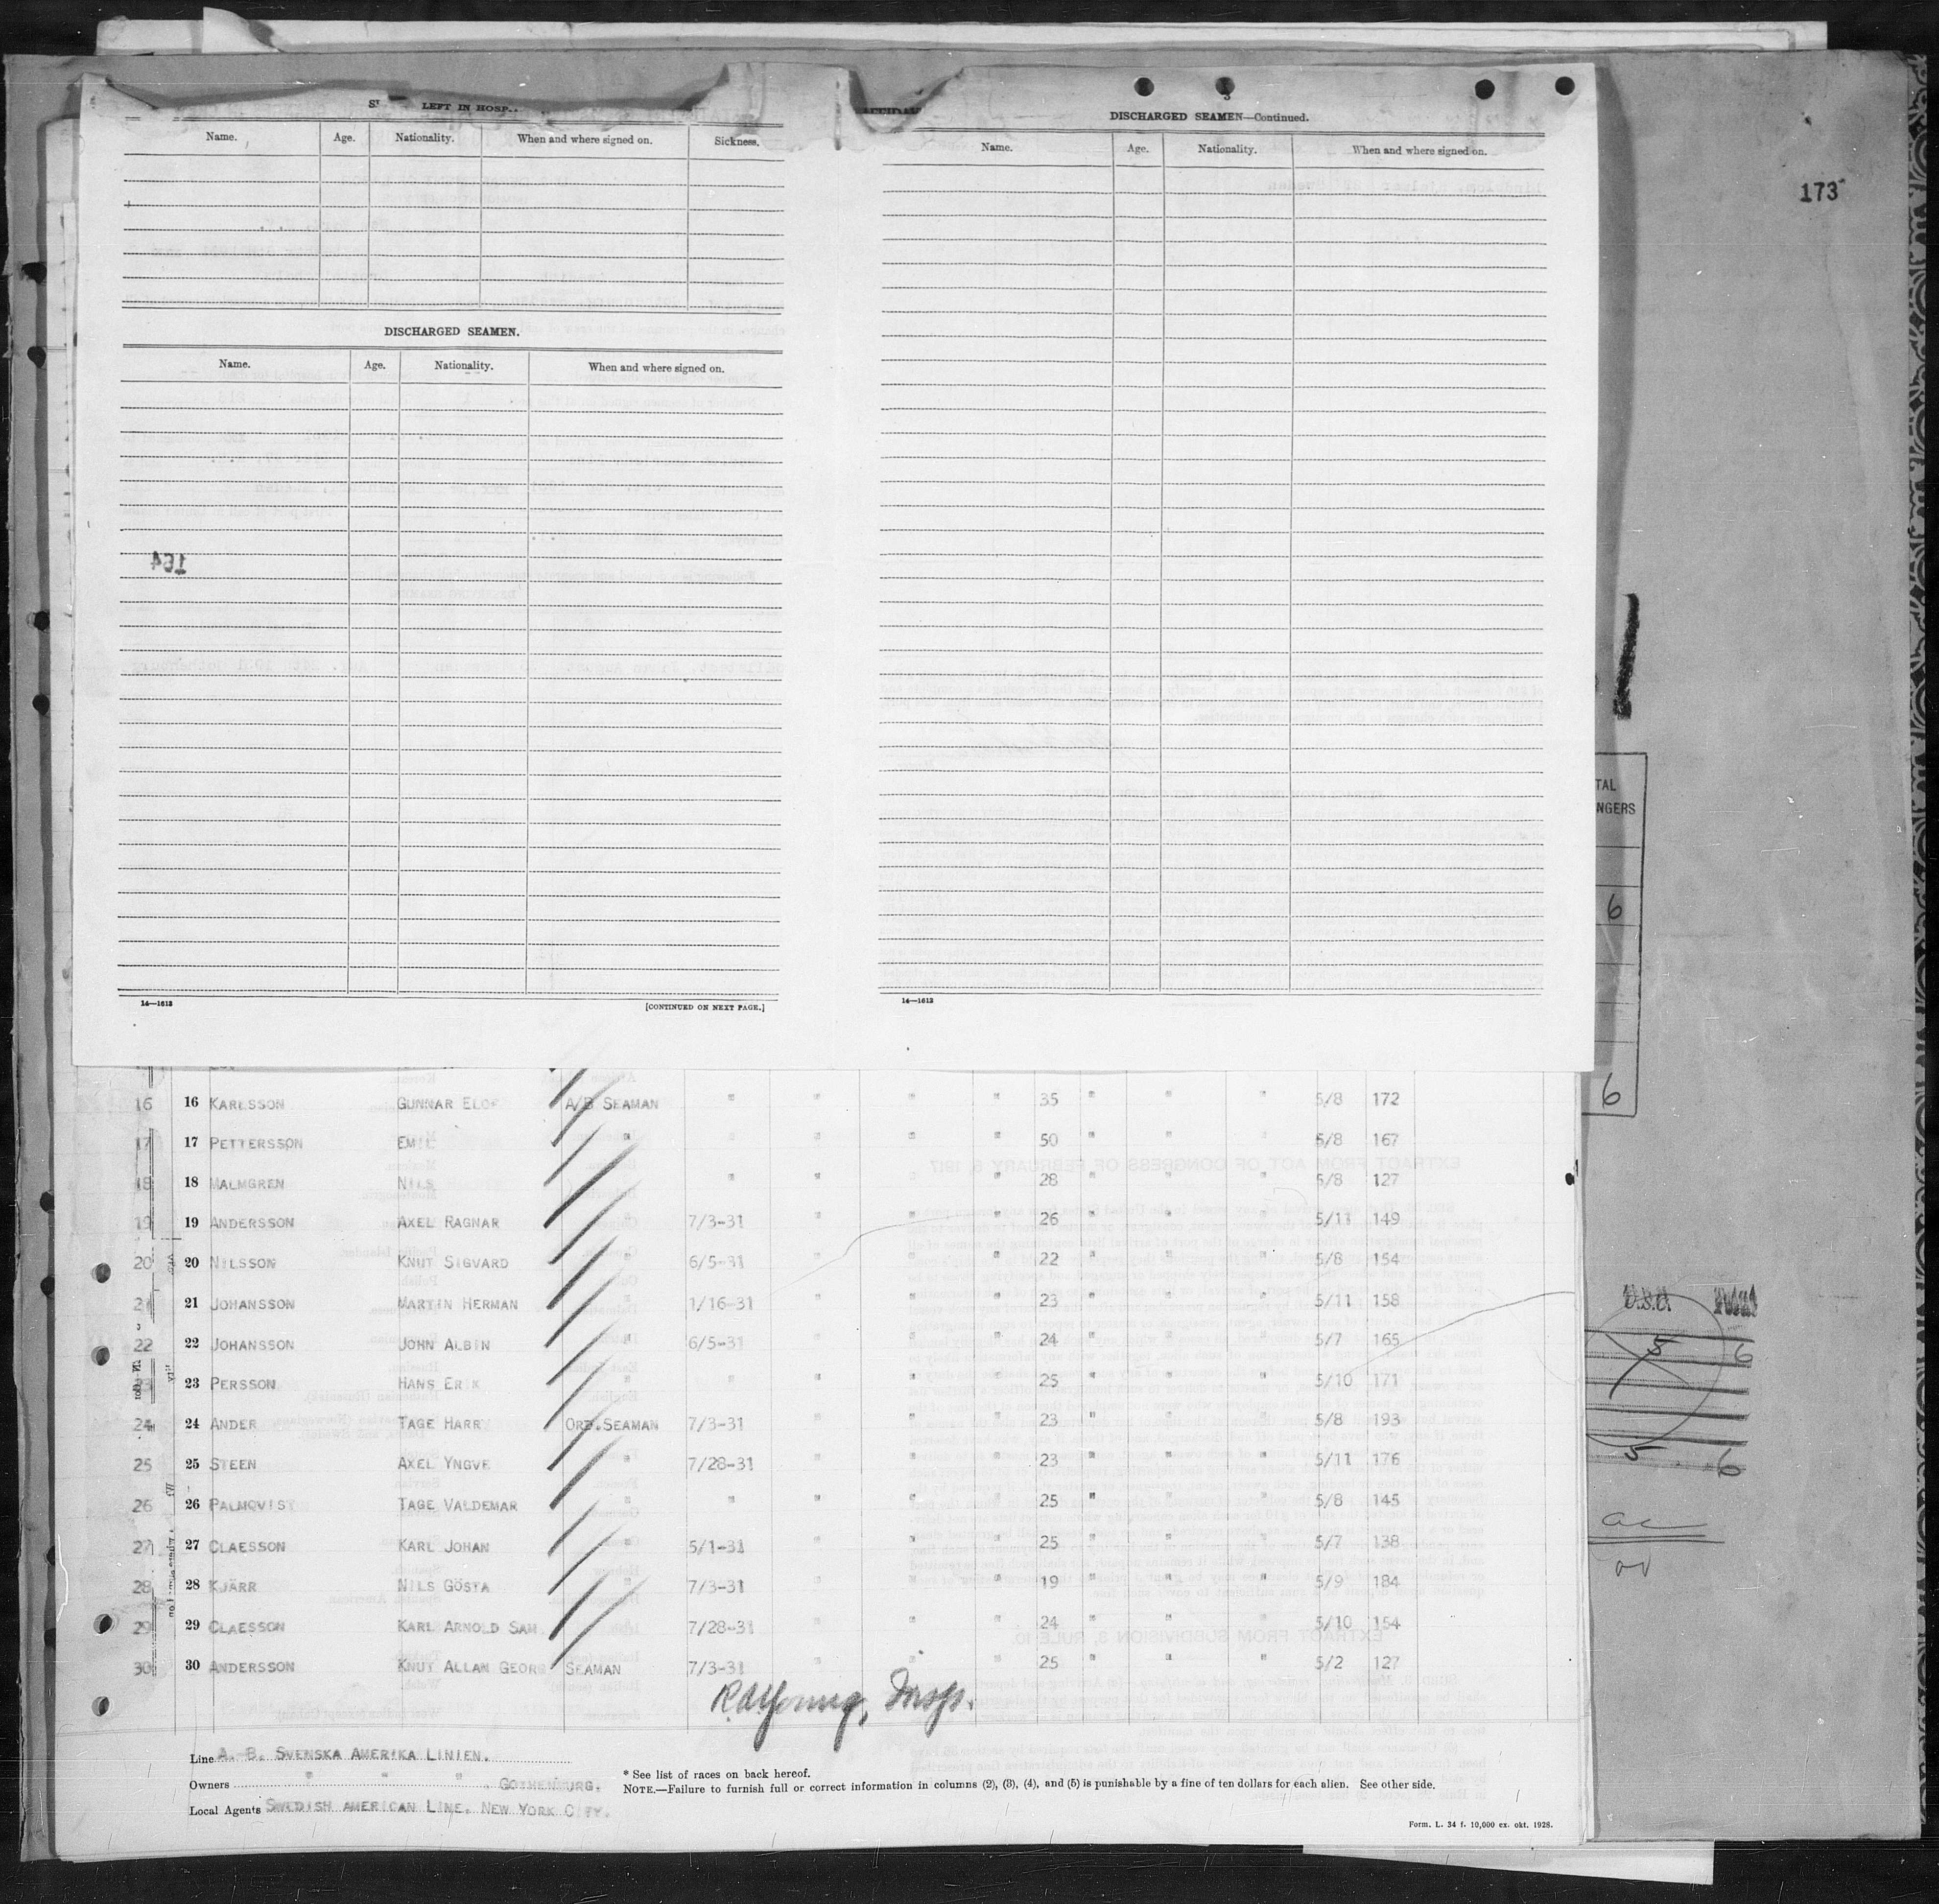 LEFT IN HOSP
Name. Age. Nationality. When and where signed on. Sickness.
DISCHARGED SEAMEN.
Name. Age. Nationality. When and where signed on.
14—1613 [CONTINUED ON NEXT PAGE.]
3
DISCHARGED SEAMEN—Continued.
Name. Age. Nationality. When and where signed on.
14—1613
173
TAL
NGERS
6
6
16 16 KARLSSON GUNNAR ELOF A/B SEAMAN " " " " 35 " " " 5/8 172
17 17 PETTERSSON EMIL " " " " 50 " " " 5/8 167
18 18 MALMGREN NILS " " " " 28 " " " 5/8 127
19 19 ANDERSSON AXEL RAGNAR " 7/3-31 " " " 26 " " " 5/11 149
20 20 NILSSON KNUT SIGVARD " 6/5-31 " " " 22 " " " 5/8 154
21 21 JOHANSSON MARTIN HERMAN " 1/16-31 " " " 23 " " " 5/11 158
22 22 JOHANSSON JOHN ALBIN " 6/5-31 " " " 24 " " " 5/7 165
23 23 PERSSON HANS ERIK " " " " " 25 " " " 5/10 171
24 24 ANDER TAGE HARRY ORD.SEAMAN 7/3-31 " " " 23 " " " 5/8 193
25 25 STEEN AXEL YNGVE " 7/28-31 " " " 23 " " " 5/11 176
26 26 PALMQVIST TAGE VALDEMAR " " " " " 25 " " " 5/8 145
27 27 CLAESSON KARL JOHAN " 5/1-31 " " " 25 " " " 5/7 138
28 28 KJÄRR NILS GÖSTA " 7/3-31 " " " 19 " " " 5/9 184
29 29 CLAESSON KARL ARNOLD SAM " 7/28-31 " " " 24 " " " 5/10 154
30 30 ANDERSSON KNUT ALLAN GEORG SEAMAN 7/3-31 " " " 25 " " " 5/2 127
U.S.A. Total
5 6
5 6
Insp.
Line A. B. SVENSKA AMERIKA LINIEN.
Owners " " " . GOTHENBURG.
Local Agents SWEDISH AMERICAN LINE. NEW YORK CITY.
* See list of races on back hereof.
NOTE.—Failure to furnish full or correct information in columns (2), (3), (4), and (5) is punishable by a fine of ten dollars for each alien. See other side.
Form. L. 34 f. 10,000 ex. okt. 1928.